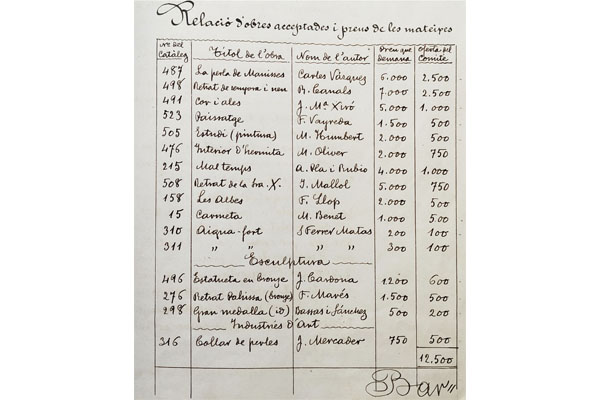 Relació d'obres acceptades i preus de les mateixes
Nº del Catàleg Títol de l'obra Nom de l'autor Preu que demana oferta del Comite
487 La perla de Manisses Carles Vàzquez 6.000 2.500
498 Retrat de senyora i nen R. Canals 7.000 2.500
491 Cor i ales J. Mª Xiró 5.000 1.000
523 Paisatge F. Vayreda 1.500 500
505 Estudi (pintura) M. Humbert 2.000 500
476 Interior d'hermita M. Oliver 2.000 750
215 Mal temps A. Pla i Rubio 4.000 1.000
508 Retrat de la Sra. X. I. Mallol 5.000 750
158 Les Albes F. Llop 2.000 500
15 Carmeta M. Benet 1.000 500
310 Aigua-fort S Ferrer Matas 200 100
311 " " " " 300 100
Esculptura
496 Estatueta en bronze J. Cardona 1.200 600
276 Retrat Dalissa (bronze) F. Marés 1.500 500
298 Gran medalla (id) Bassas i Sánchez 500 200
Industries d'Art
316 Collar de perles J. Mercader 750 500
12.500